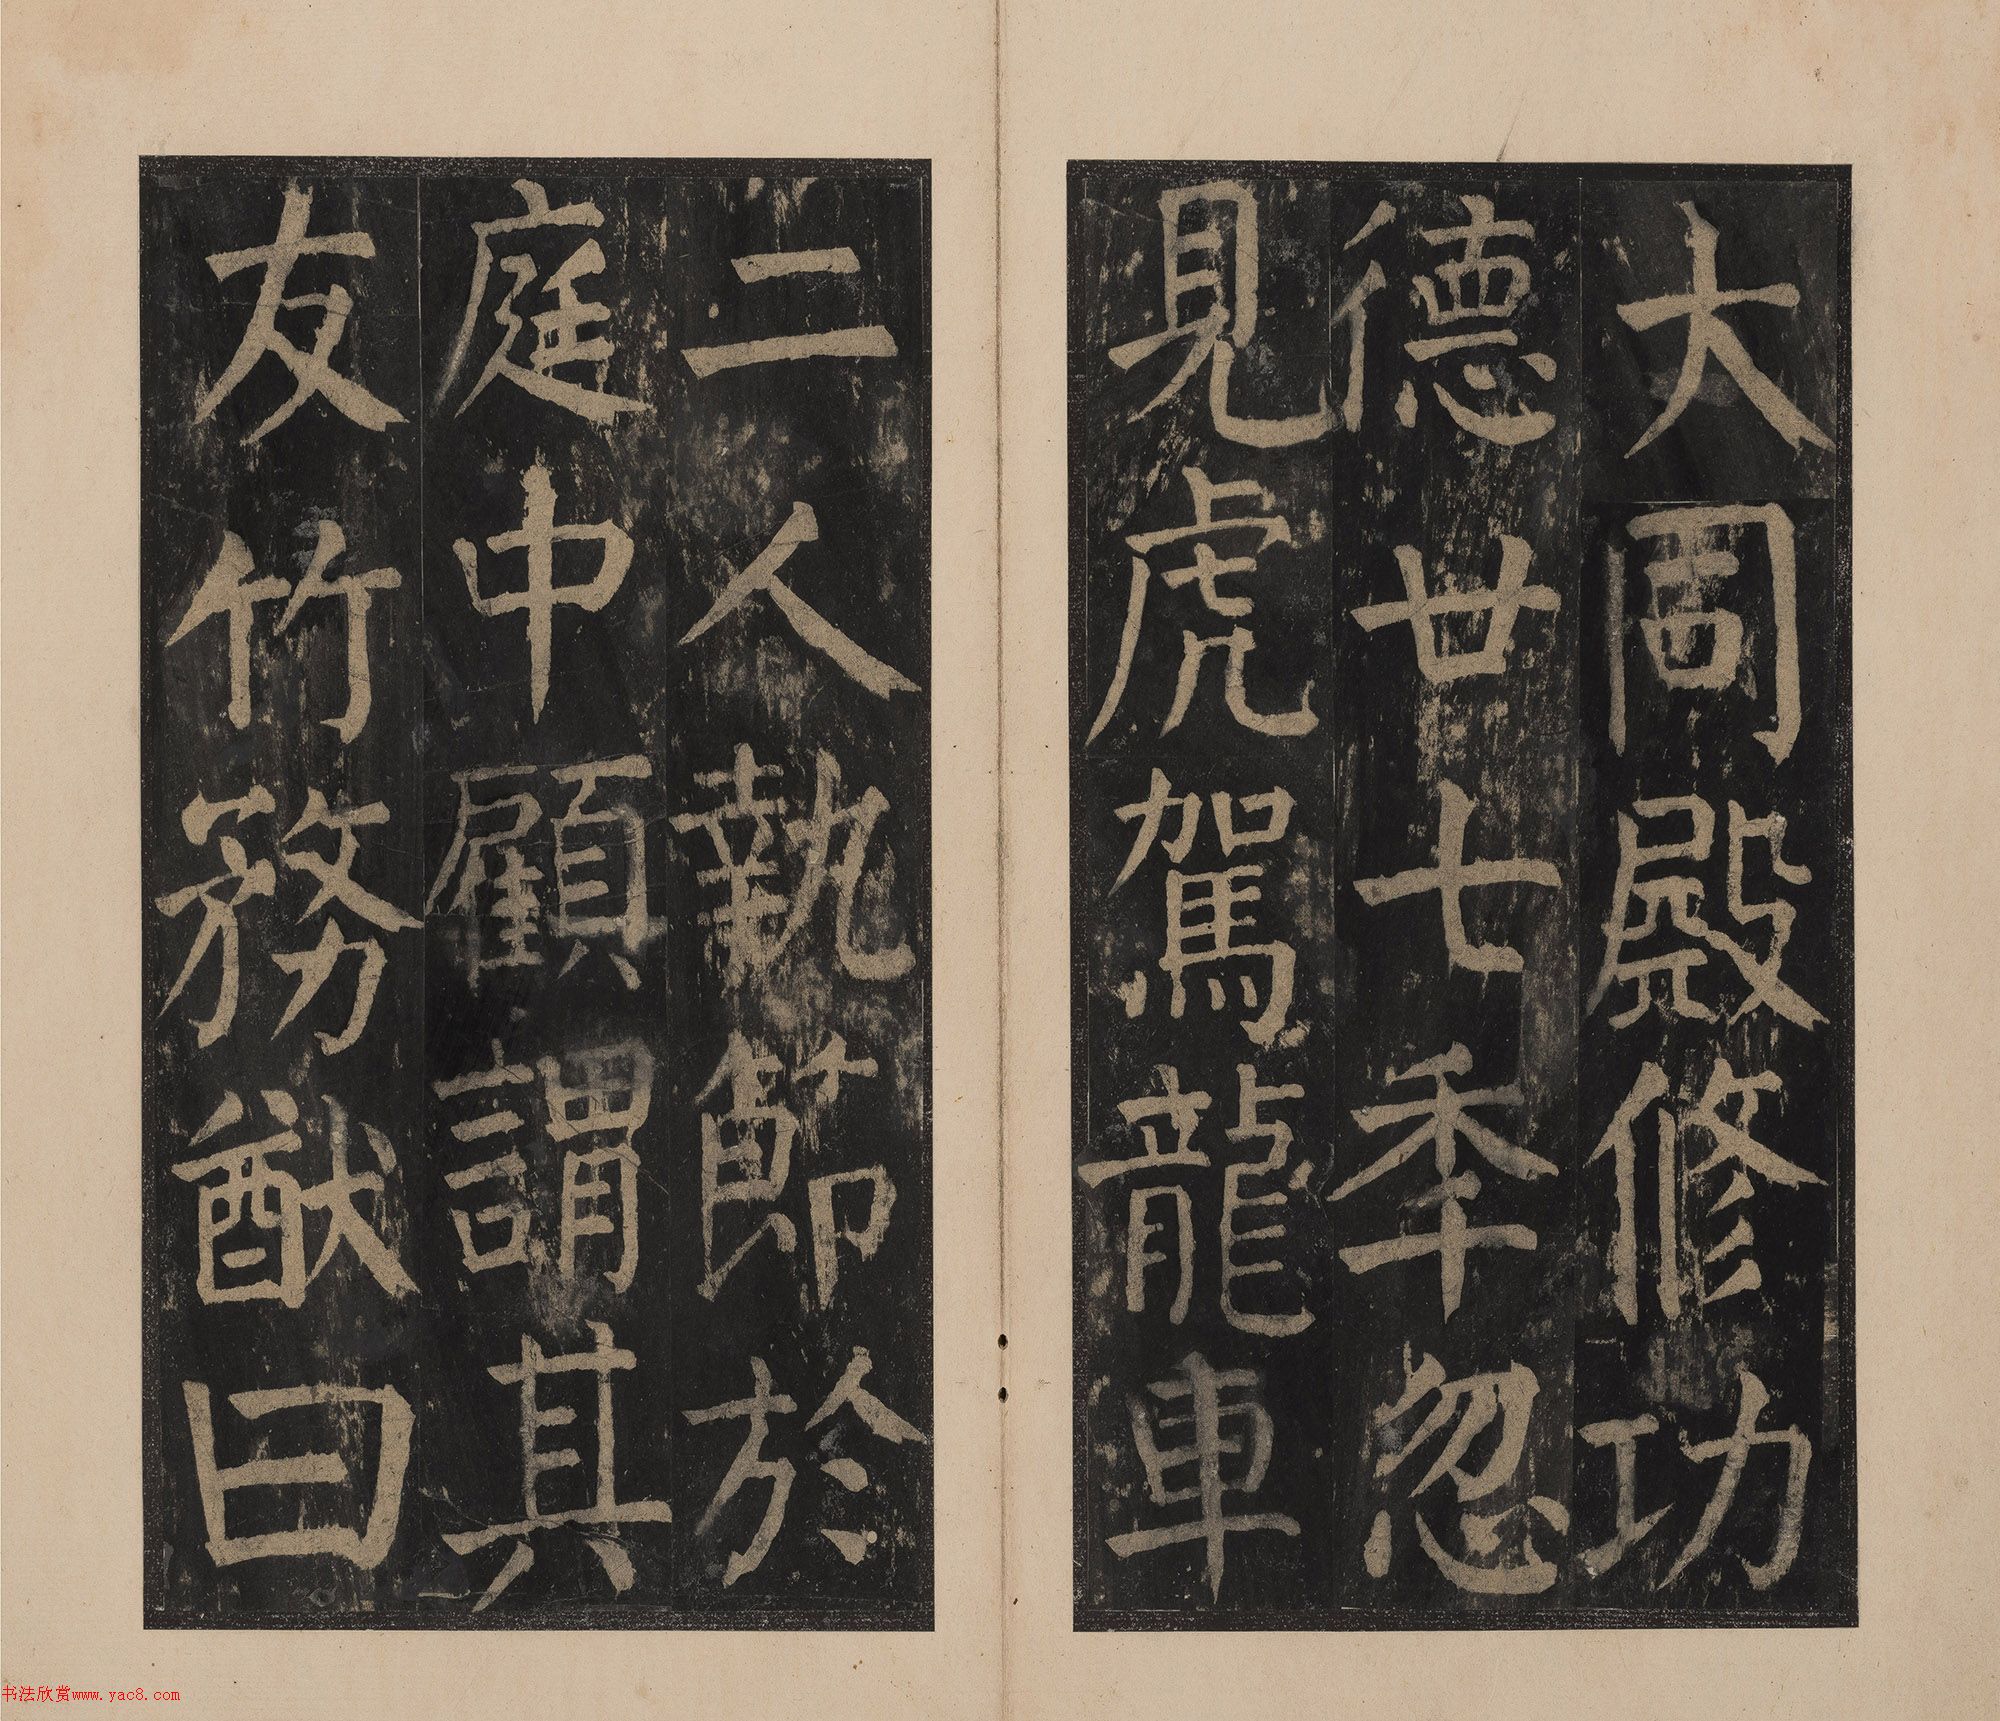 大周殿修功
德廿七秊忽
見虎駕龍車
二人執節於
庭中顧謂其
友竹務猷曰
书法欣赏www.yac8.com